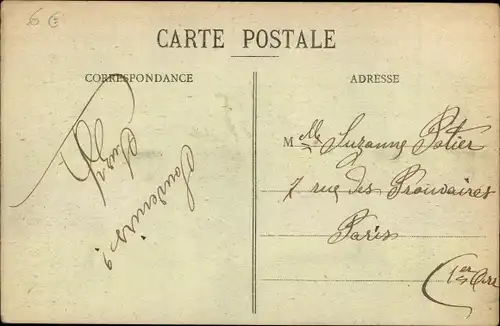 6 €
CARTE POSTALE
CORRESPONDANCE
ADRESSE
Souvenirs !
Mlle Suzanne Potier
7 rue des Prouvaires
Paris
(1er Arr